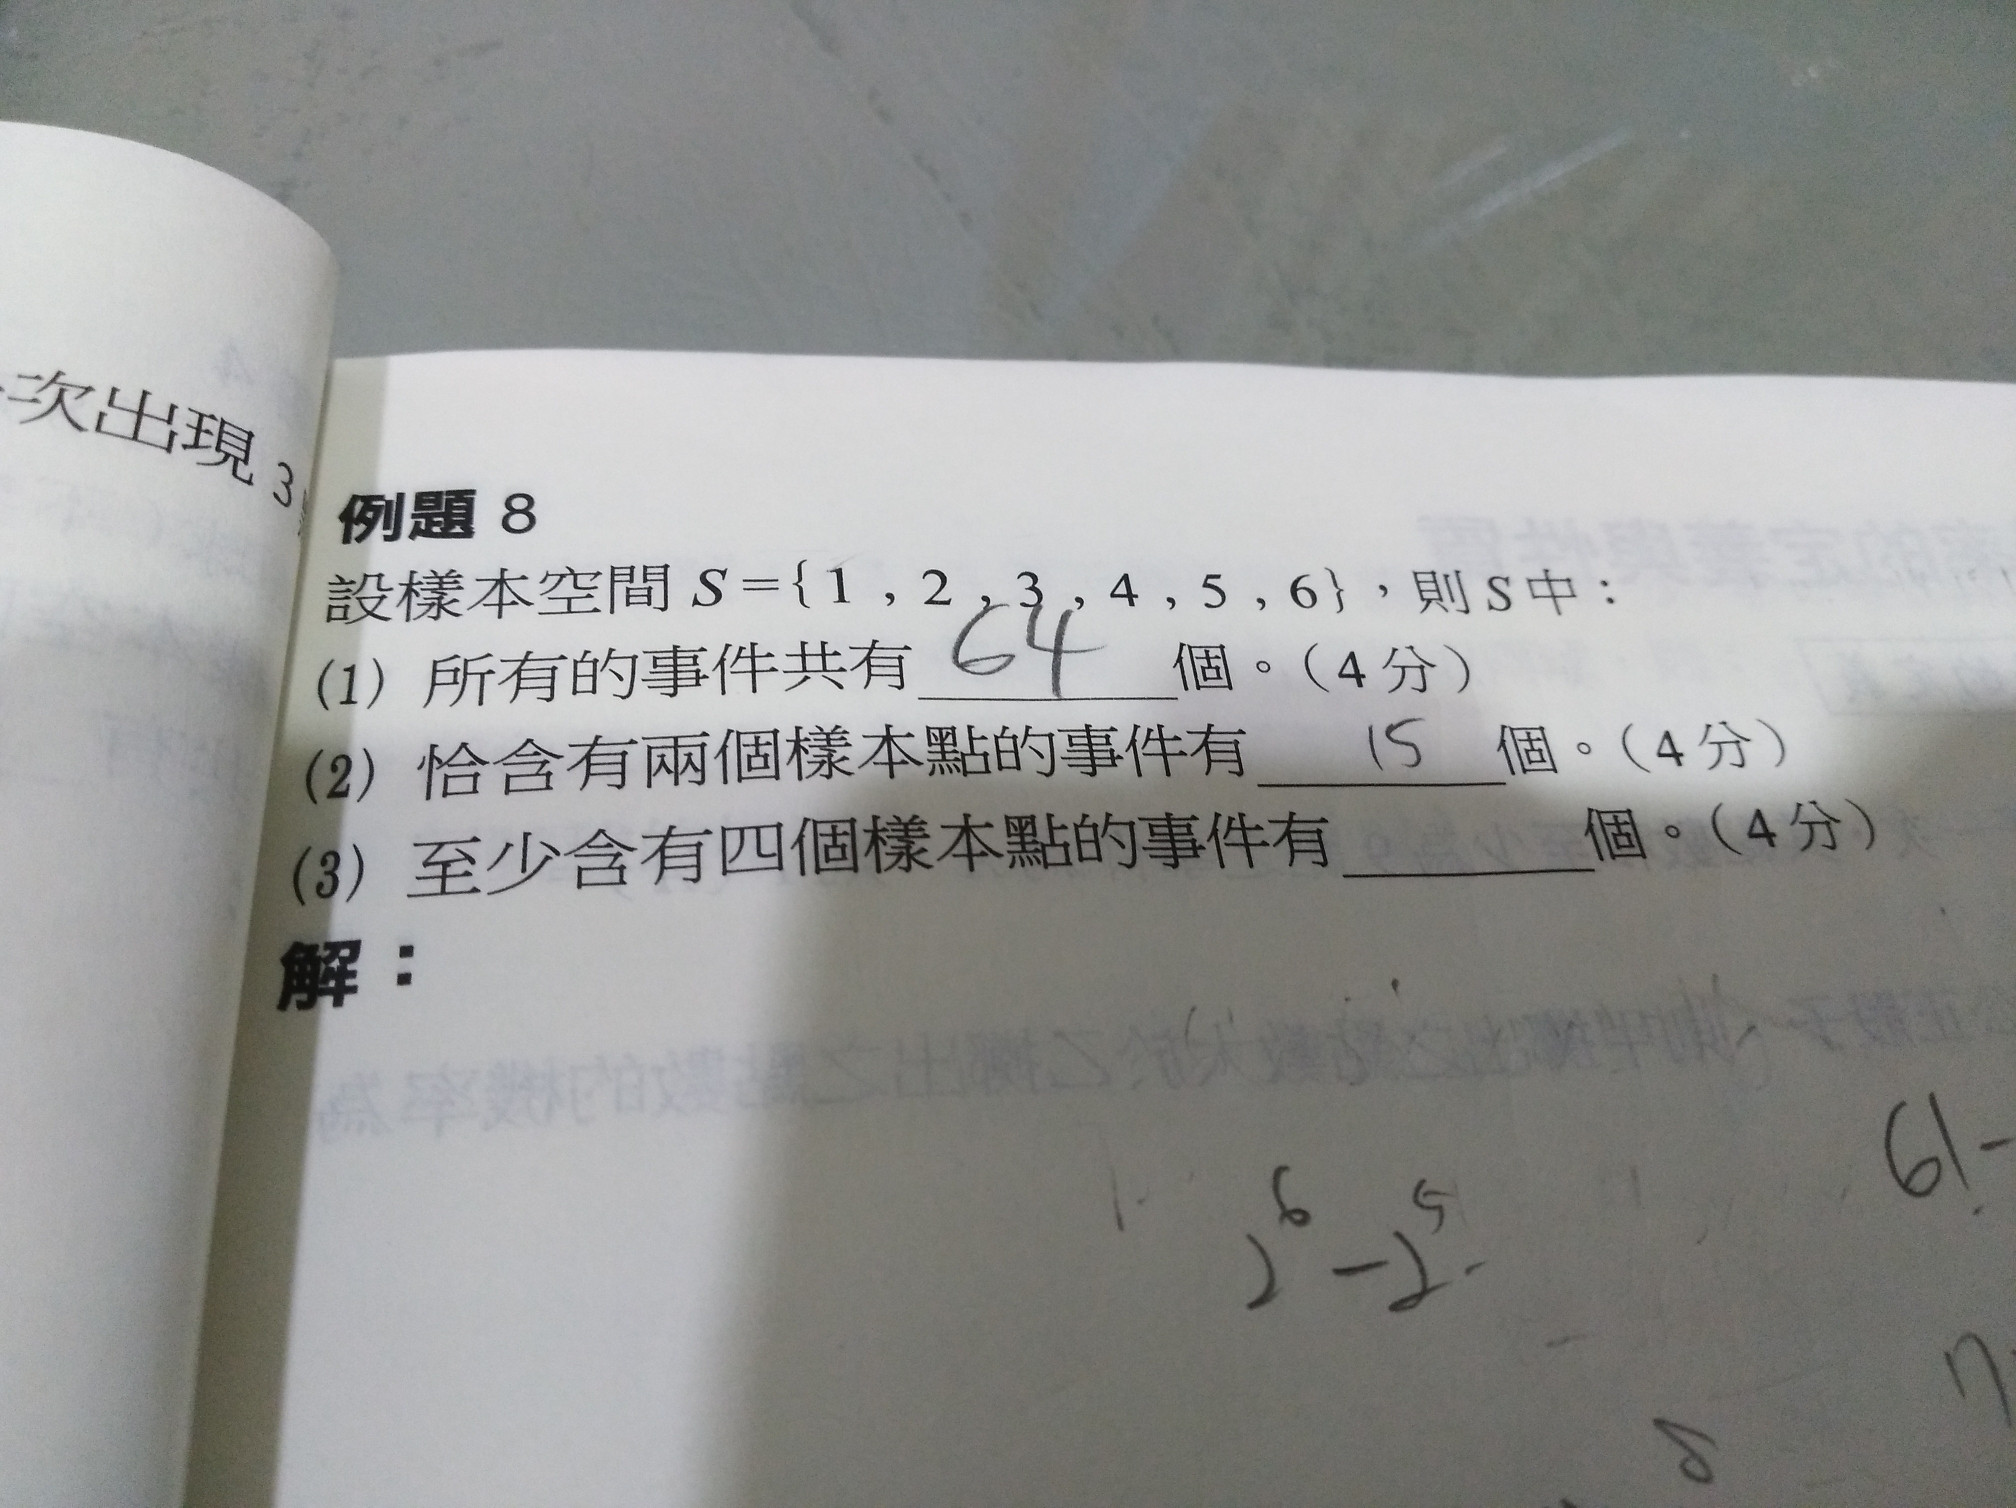 次出現 3
例題 8
設樣本空間 S={1 , 2 , 3 , 4 , 5 , 6}，則 S 中：
(1) 所有的事件共有 64 個。（4 分）
(2) 恰含有兩個樣本點的事件有 15 個。（4 分）
(3) 至少含有四個樣本點的事件有______個。（4 分）
解：